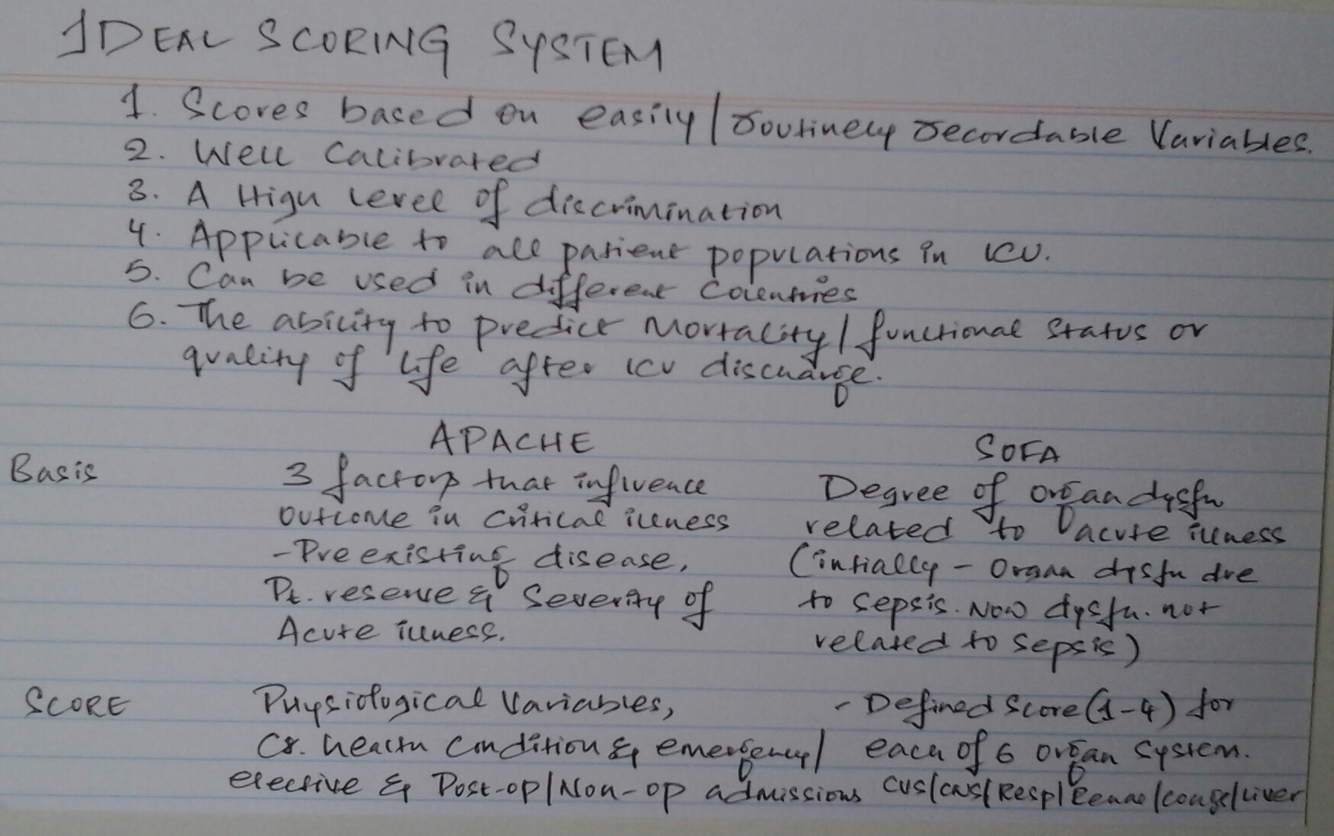 IDEAL SCORING SYSTEM
1. Scores based on easily/routinely recordable Variables.
2. Well Calibrated
3. A High level of discrimination
4. Applicable to all patient populations in ICU.
5. Can be used in different Countries
6. The ability to predict Mortality/functional status or
quality of life after ICU discharge.
APACHE SOFA
Basis 3 factors that influence Degree of organ dysfn
outcome in critical illness related to acute illness
- Pre existing disease, (intially - Organ dysfn due
Pt. reserve & Severity of to sepsis. Now dysfn. not
Acute illness. related to sepsis)
SCORE Physiological Variables, - Defined Score (1-4) for
Cr. health condition & emergency/ each of 6 organ system.
elective & Post-op/Non-op admissions CVS/CNS/Resp/Renal/coag/Liver